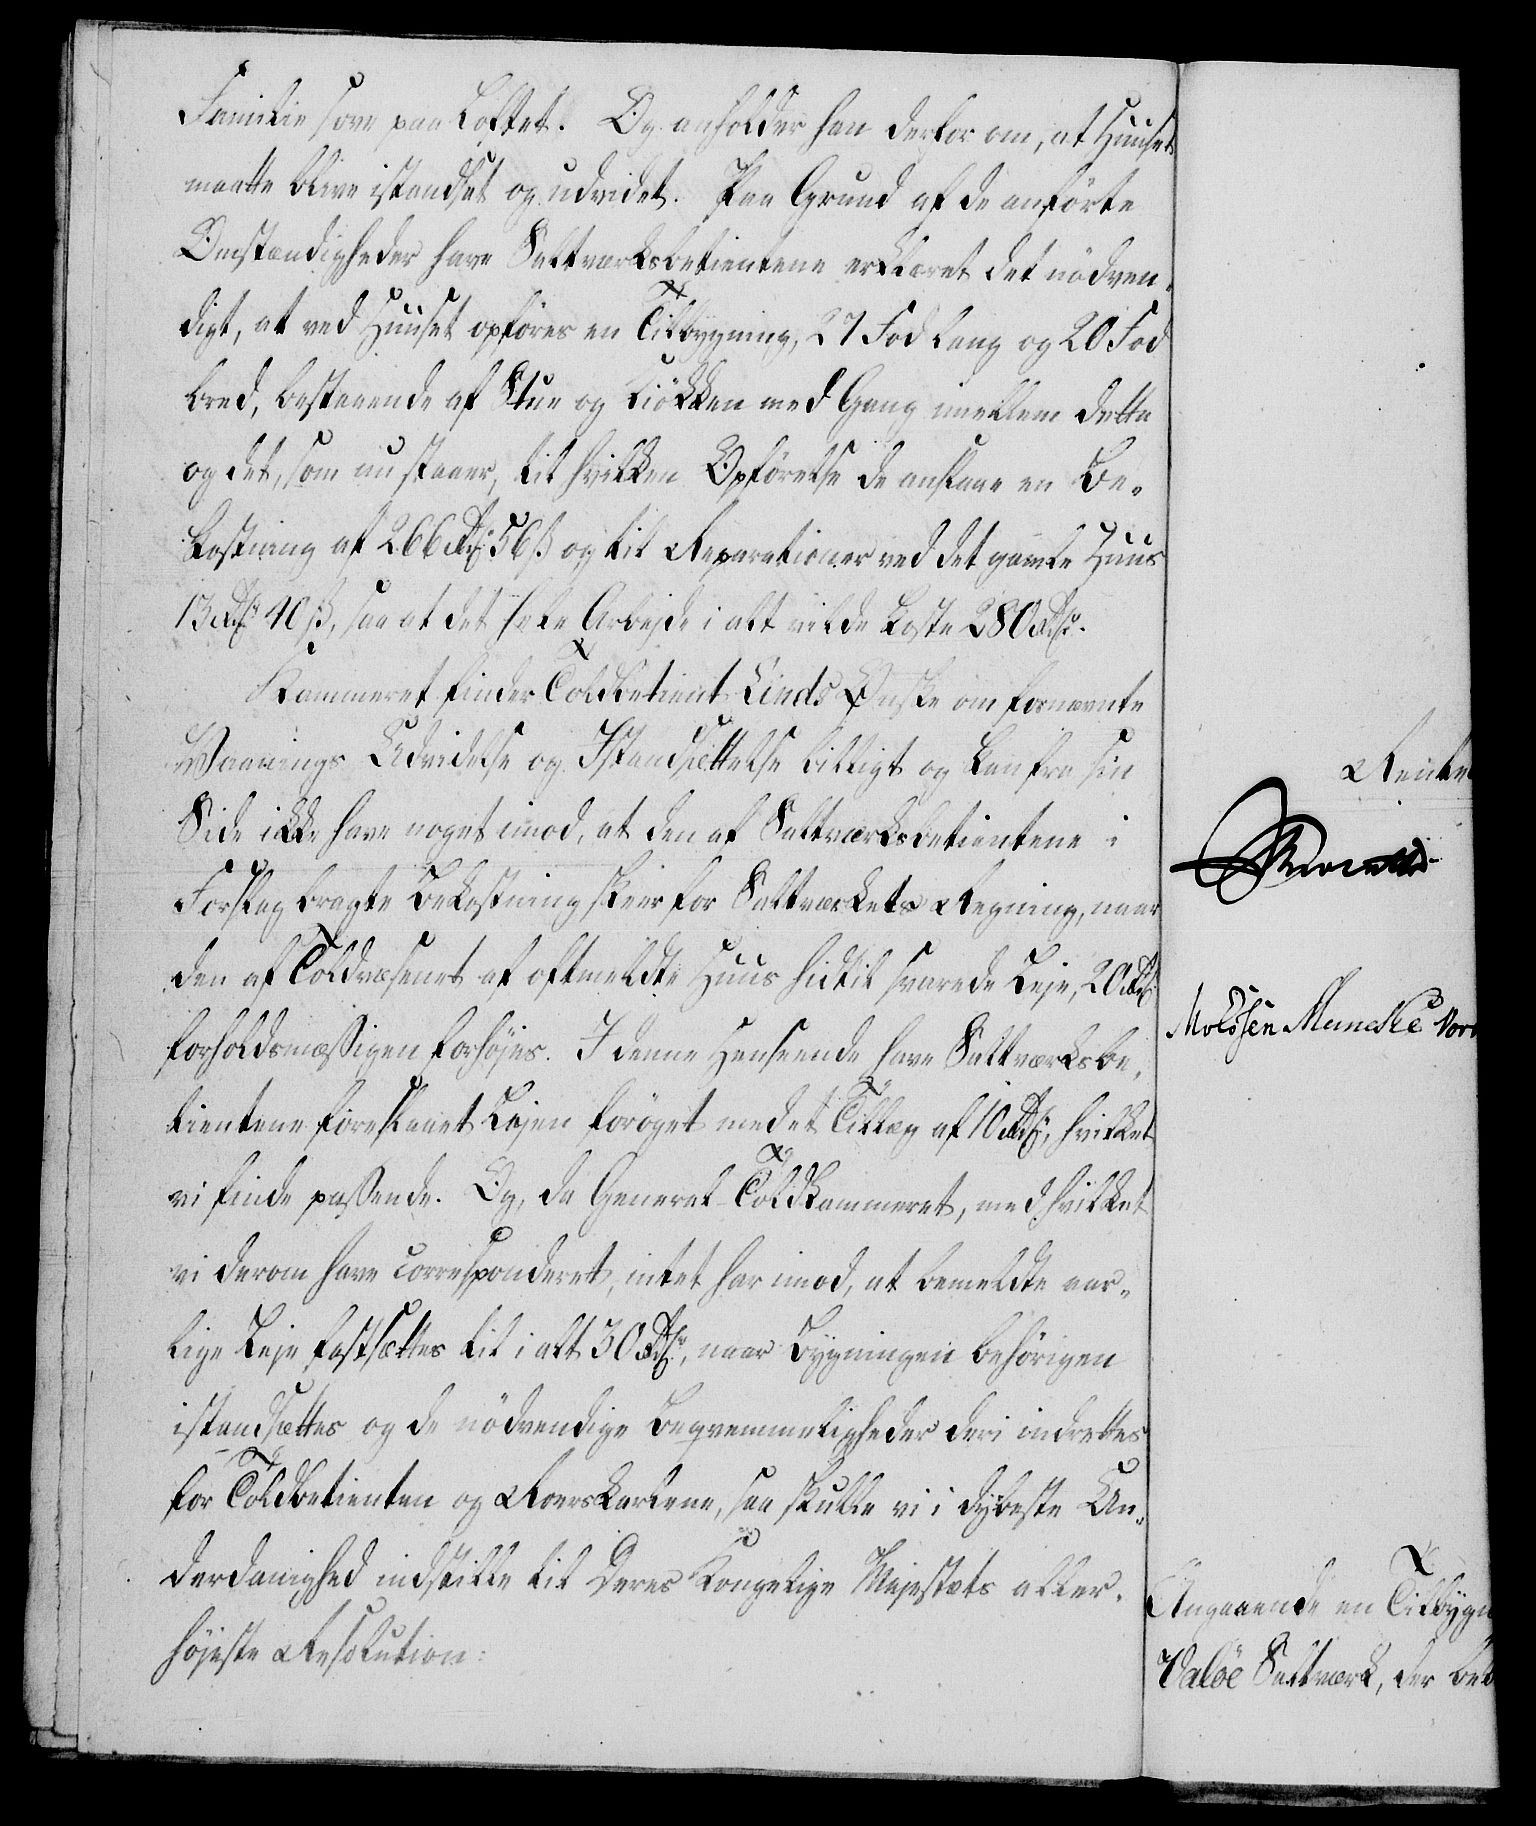 Familie sove paa Loftet. Og anholder han derfor om, at Huuset
maatte blive istandsat og udvidet. Paa Grund af de anförte
Omstændigheder have Saltværksbetientene erklæret det nödven-
digt, at ved Huuset opföres en Tilbygning, 27 Fod lang og 20 Fod
bred, bestaaende af Stue og Kiökken med Gang imellem dette
og det, som nu staaer, til hvilken Opförelse de anslaae en Be-
kostning af 266 Rdr. 56 ß og til Reparationer ved det gamle Huus
13 Rdr. 40 ß, saa at det hele Arbejde i alt vilde koste 280 Rdr.
Kammeret finder Toldbetient Linds Ønske om fornævnte
Vaanings Udvidelse og Istandsættelse billigt og kan fra sin
Side ikke have noget imod, at den af Saltværksbetientene i
Forslag bragte Bekostning skeer for Saltværkets Regning, naar
den af Toldvæsenet af oftmeldte Huus hidtil svarede Leje, 20 Rdr.
forholdsmæssigen forhöjes. I denne Henseende have Saltværksbe-
tientene foreslaaet Lejen foröget med et Tillæg af 10 Rdr., hvilket
vi finde passende. Og, da General-Toldkammeret, med hvilket
vi derom have corresponderet, intet har imod, at bemeldte aar-
lige Leje fastsættes til i alt 30 Rdr., naar Bygningen behörigen
istandsættes og de nödvendige Beqvemmeligheder deri indrettes
for Toldbetienten og Roerskarlene, saa skulle vi i dybeste Un-
derdanighed indstille til Deres Kongelige Majestæts aller-
höjeste Resolution:
Rente
Molssen Muncke
Angaaende en Tilbygn
Valöe Saltværk, der